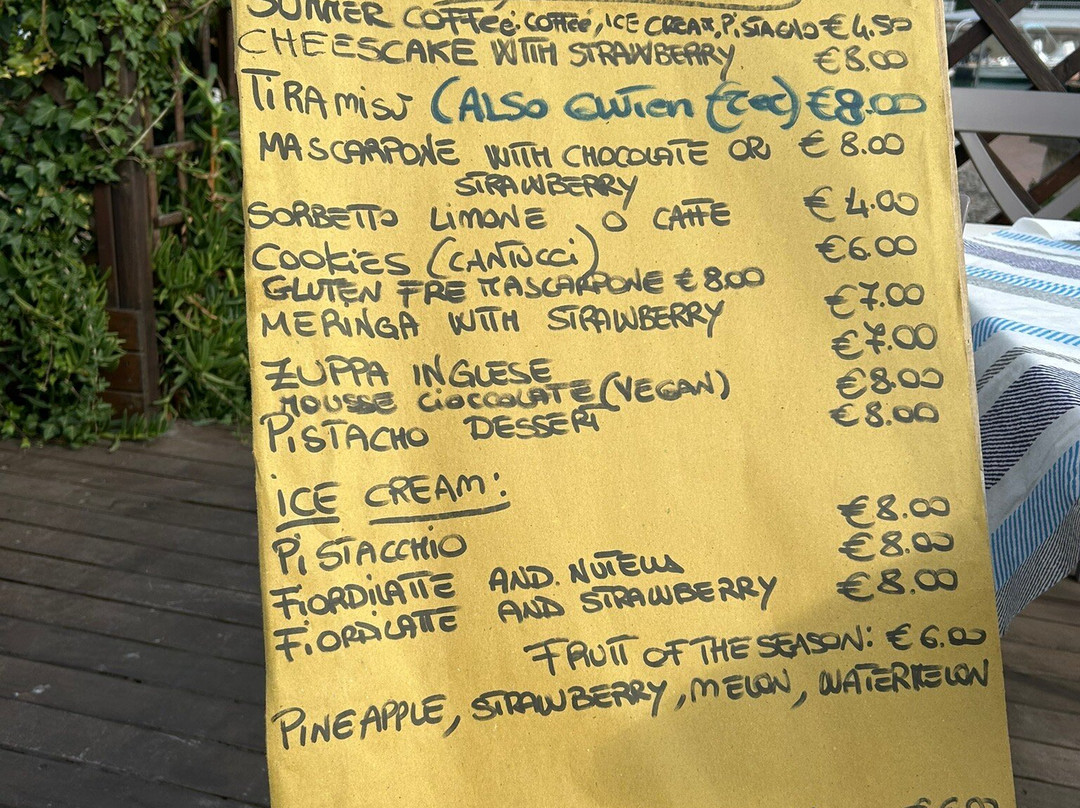 SUMMER COFFEE: COFFEE, ICE CREAM, PISTACHO €4.50
CHEESCAKE WITH STRAWBERRY €8.00
TIRAMISU (ALSO GLUTEN FREE) €8.00
MASCARPONE WITH CHOCOLATE OR €8.00
STRAWBERRY
SORBETTO LIMONE O CAFFE €4.00
COOKIES (CANTUCCI) €6.00
GLUTEN FRE MASCARPONE €8.00
MERINGA WITH STRAWBERRY €7.00
ZUPPA INGLESE €7.00
MOUSSE CIOCCOLATE (VEGAN) €8.00
PISTACHO DESSERT €8.00
ICE CREAM:
PISTACCHIO €8.00
FIORDILATTE AND NUTELLA €8.00
FIORDILATTE AND STRAWBERRY €8.00
FRUIT OF THE SEASON: €6.00
PINEAPPLE, STRAWBERRY, MELON, WATERMELON